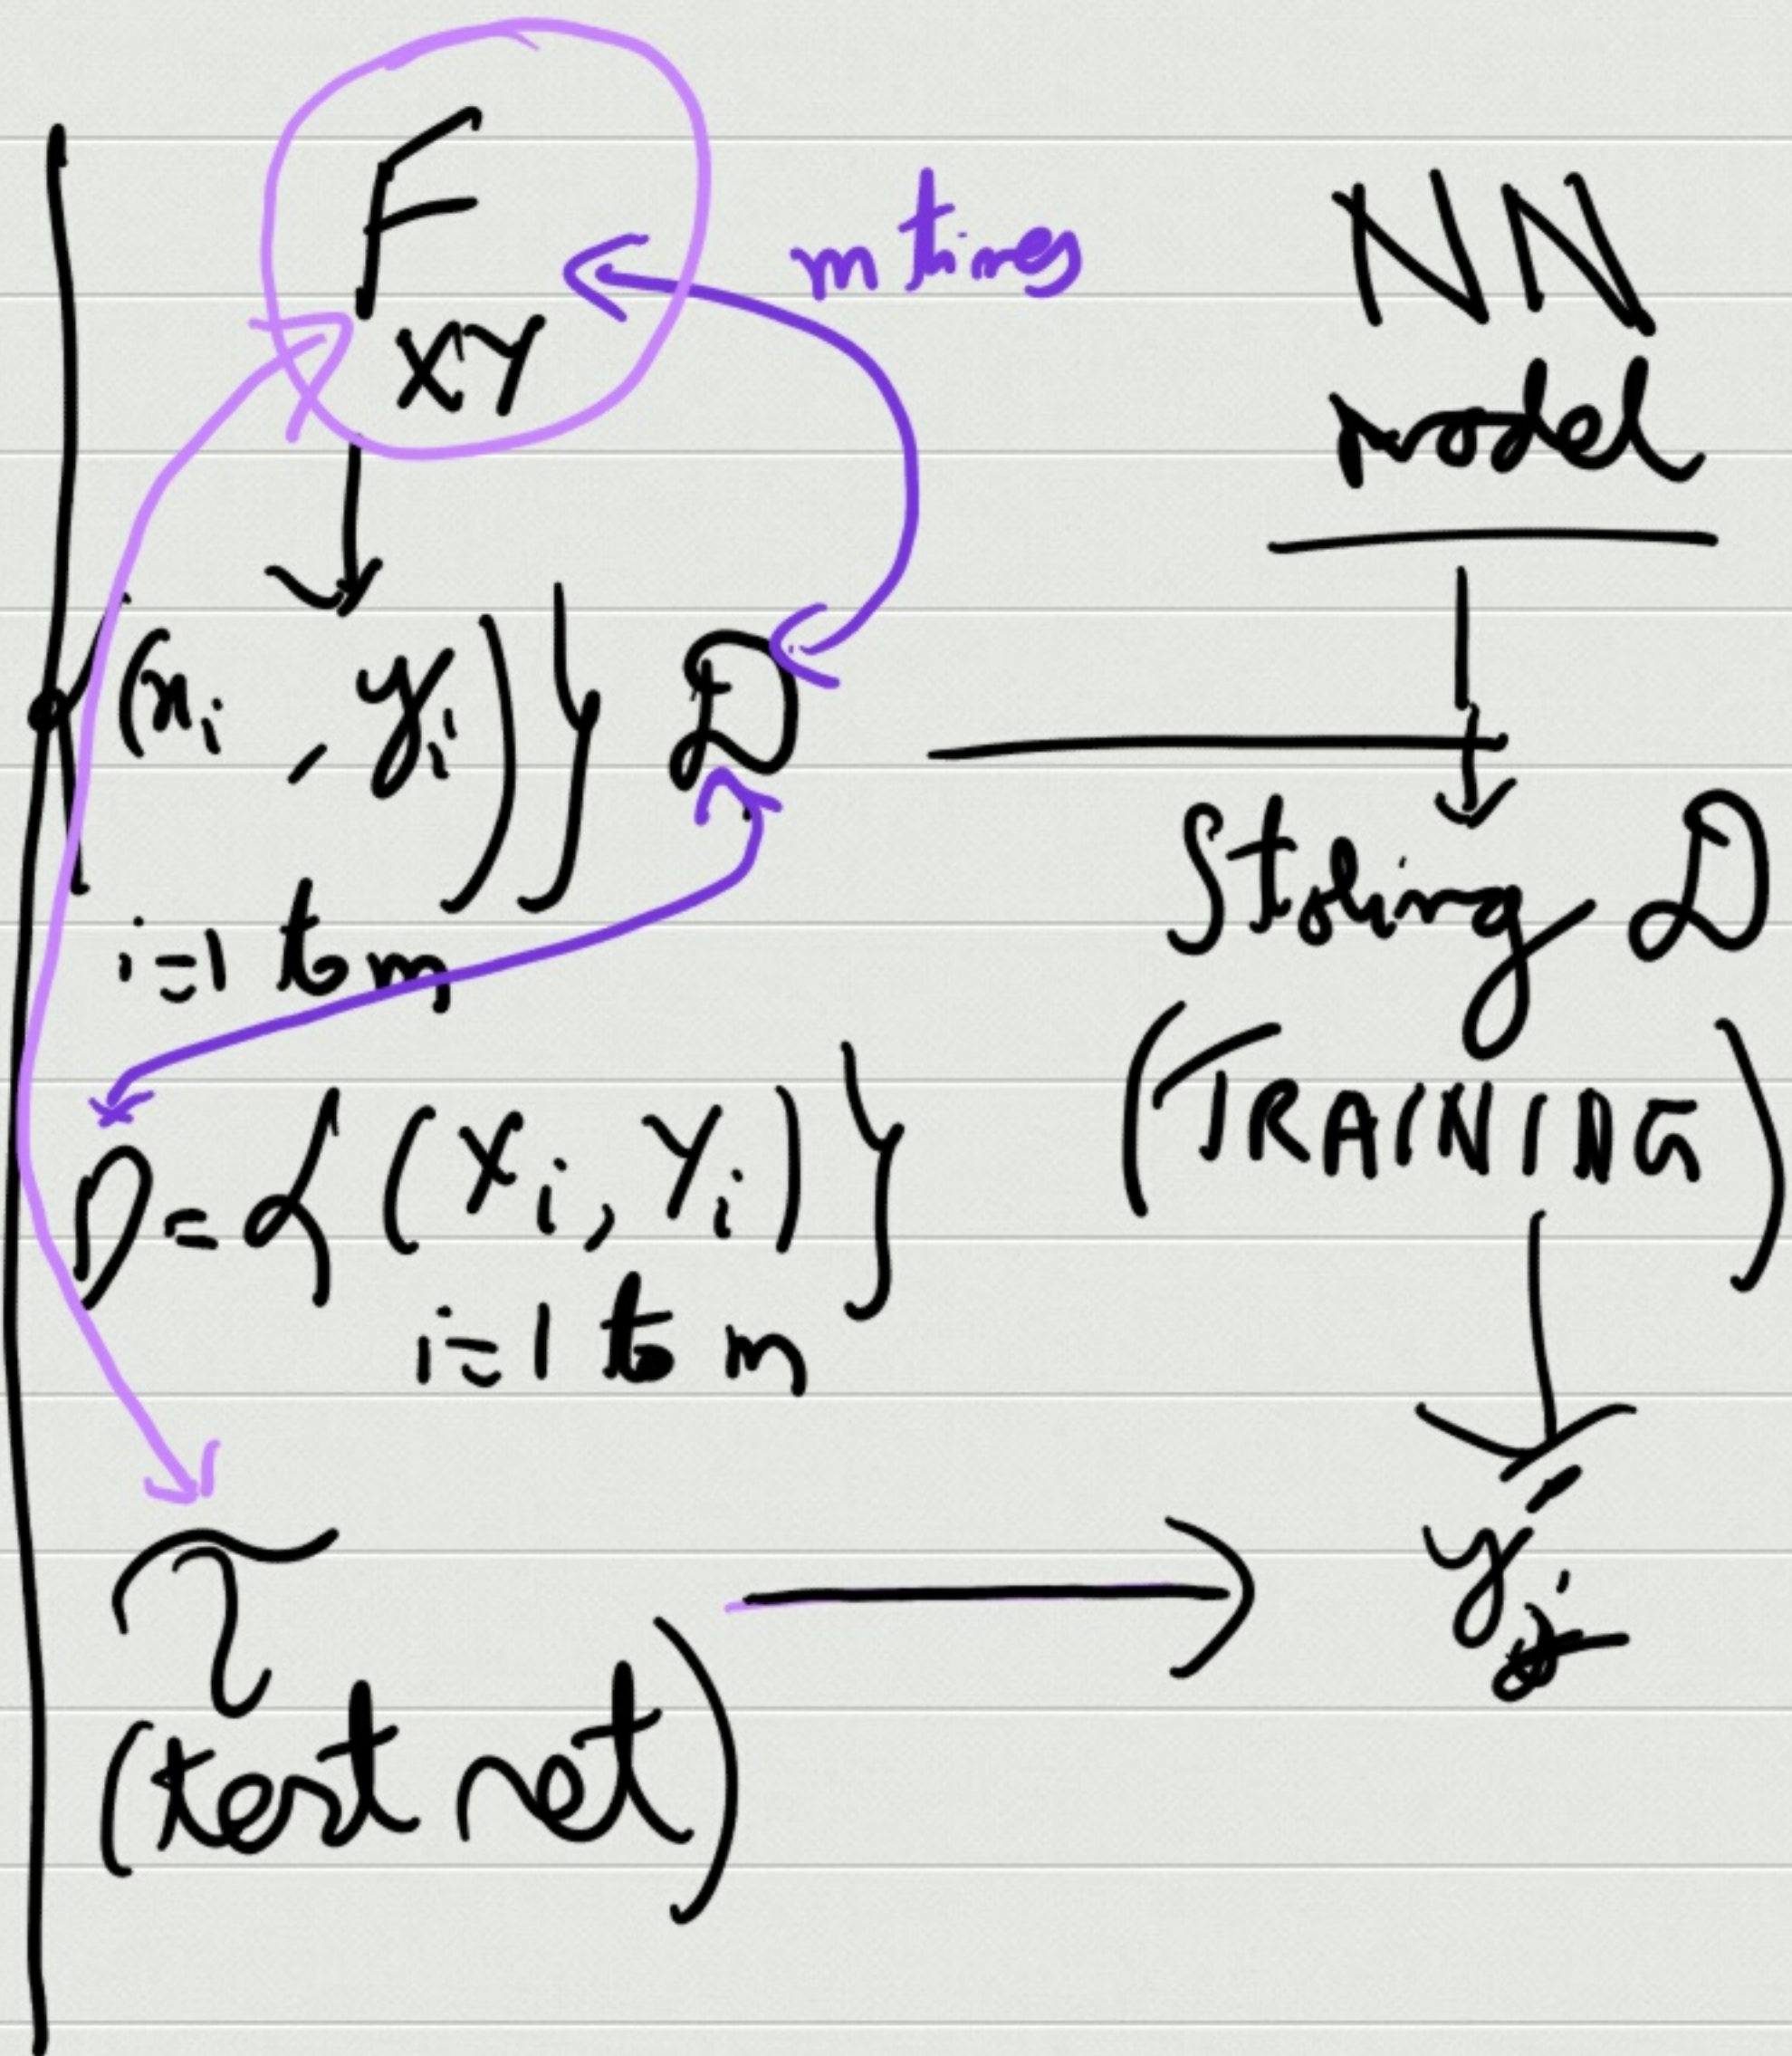 F
XY
m times
NN
model
{(x_i, y_i)} D
i=1 to m
Storing D
(TRAINING)
D={(X_i, Y_i)}
i=1 to m
T
(test set)
y_j